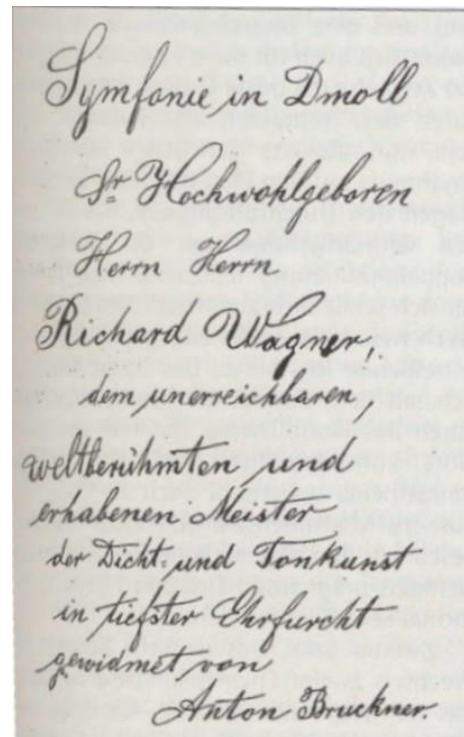 Symfonie in Dmoll
Sr Hochwohlgeboren
Herrn Herrn
Richard Wagner,!
dem unerreichbaren,
weltberühmten und
erhabenen Meister
der Dicht= und Tonkunst
in tiefster Ehrfurcht
gewidmet von
Anton Bruckner.